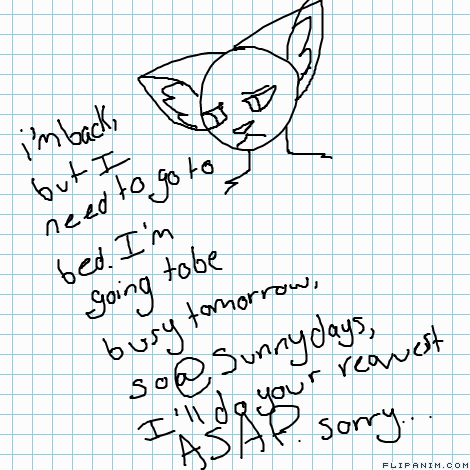 i'm back,
but I
need to go to
bed. I'm
going to be
busy tomorrow,
so @Sunnydays,
I'll do your request
ASAP. sorry...
FLIPANIM.COM